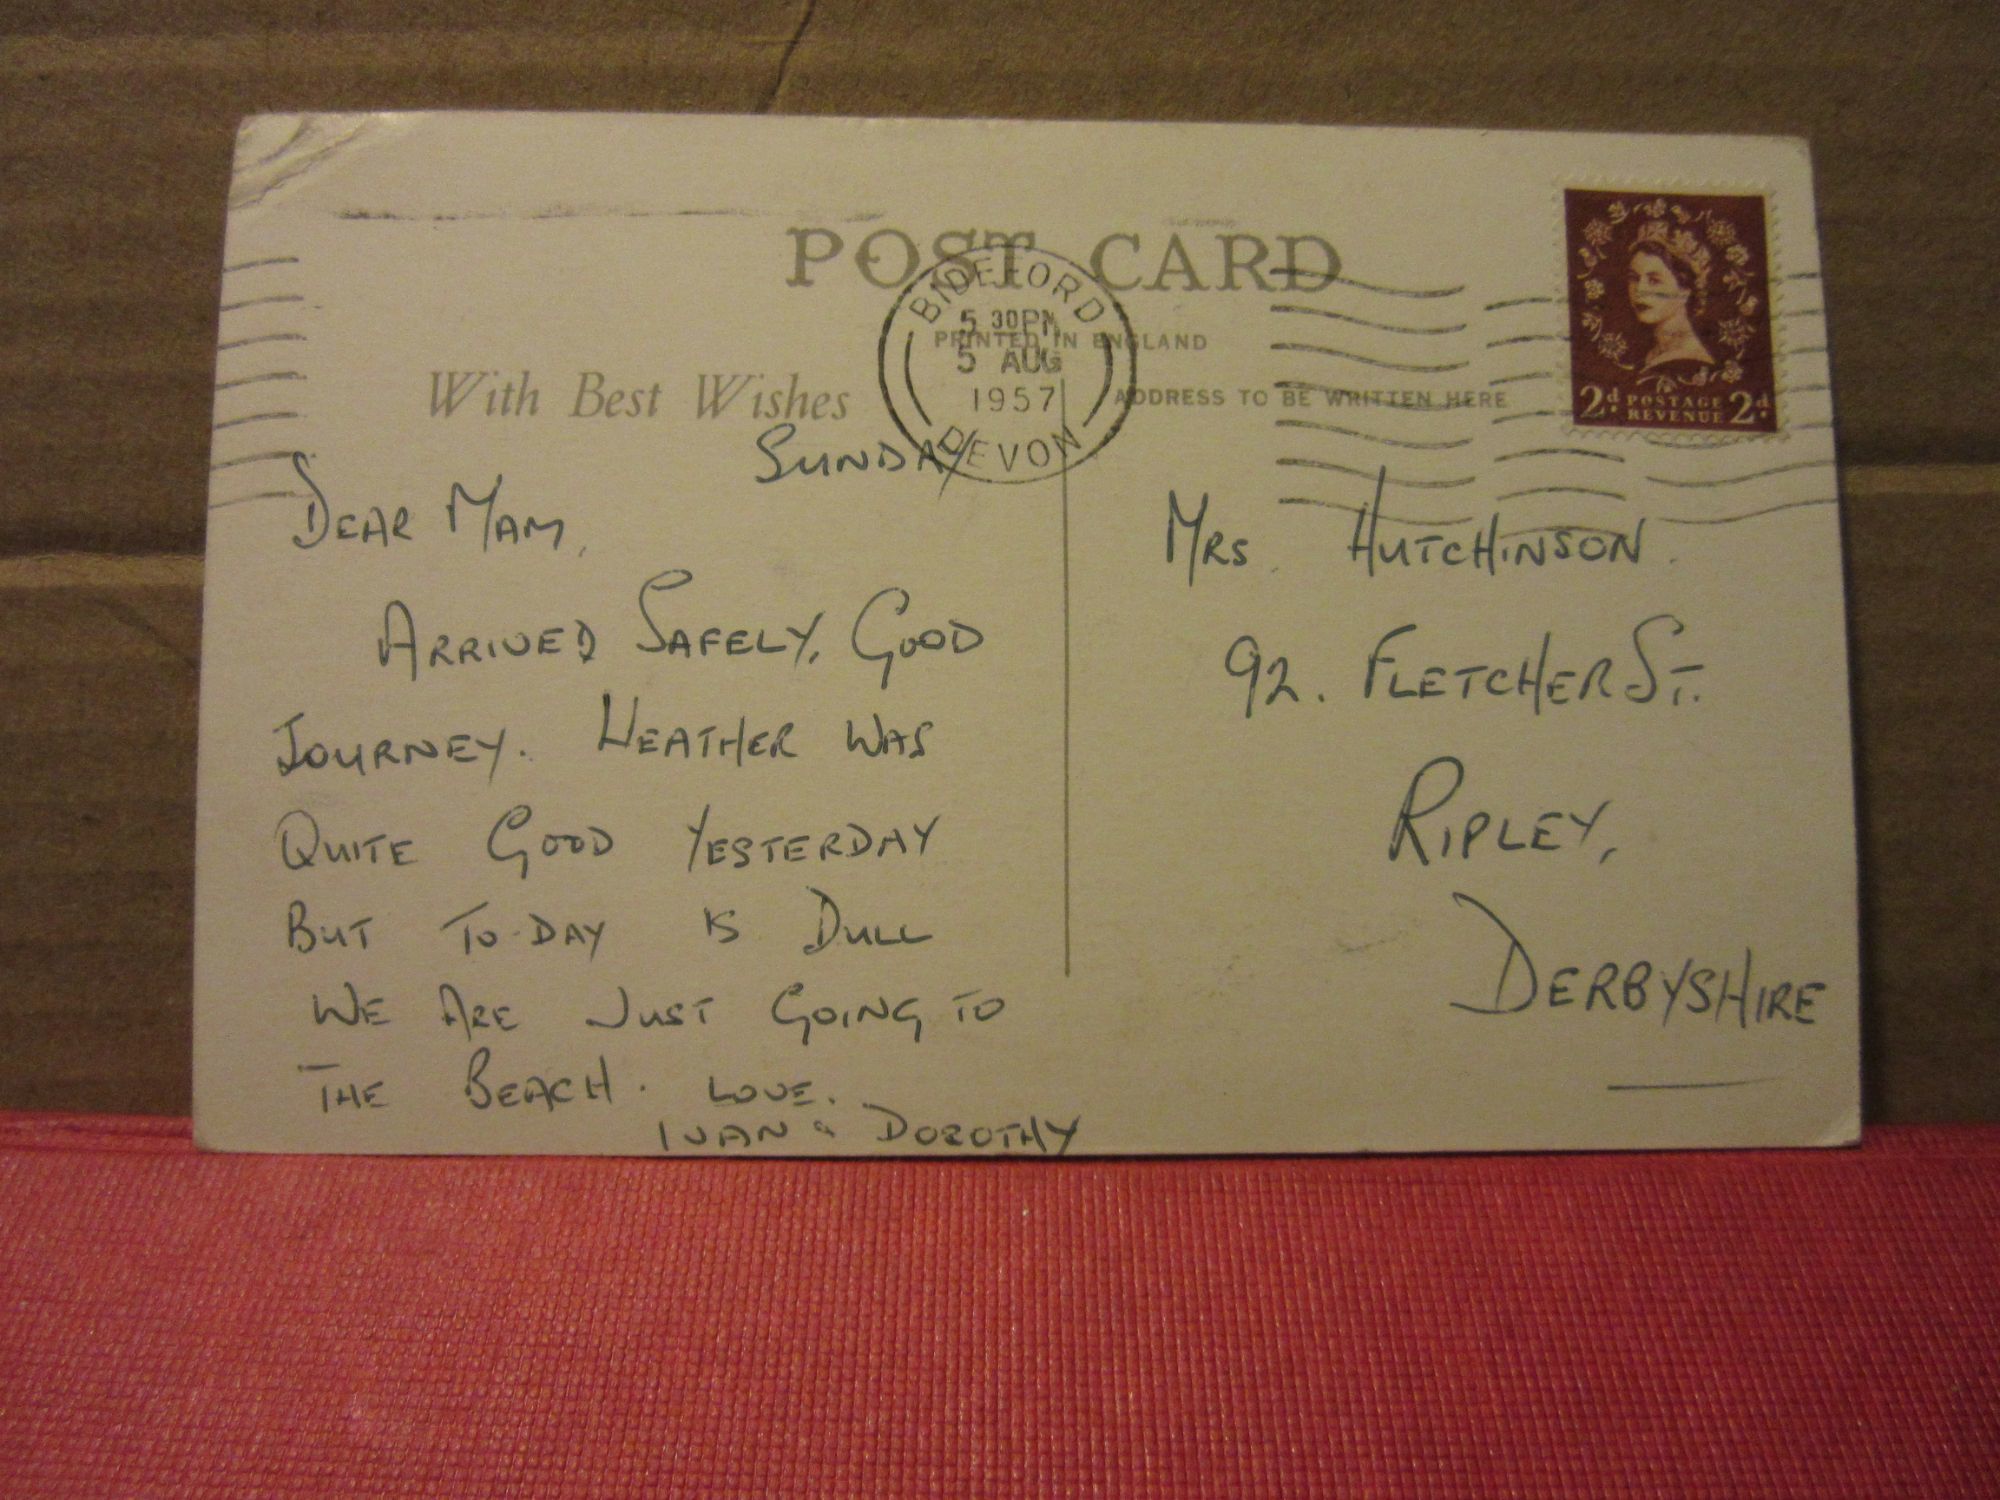 POST CARD
PRINTED IN ENGLAND
With Best Wishes
ADDRESS TO BE WRITTEN HERE
BIDEFORD
5 30PM
5 AUG
1957
DEVON
2d. POSTAGE REVENUE 2d.
SUNDAY
DEAR MAM,
ARRIVED SAFELY, GOOD
JOURNEY. WEATHER WAS
QUITE GOOD YESTERDAY
BUT TO-DAY IS DULL
WE ARE JUST GOING TO
THE BEACH. LOVE.
IVAN & DOROTHY
MRS. HUTCHINSON.
92. FLETCHER ST.
RIPLEY,
DERBYSHIRE